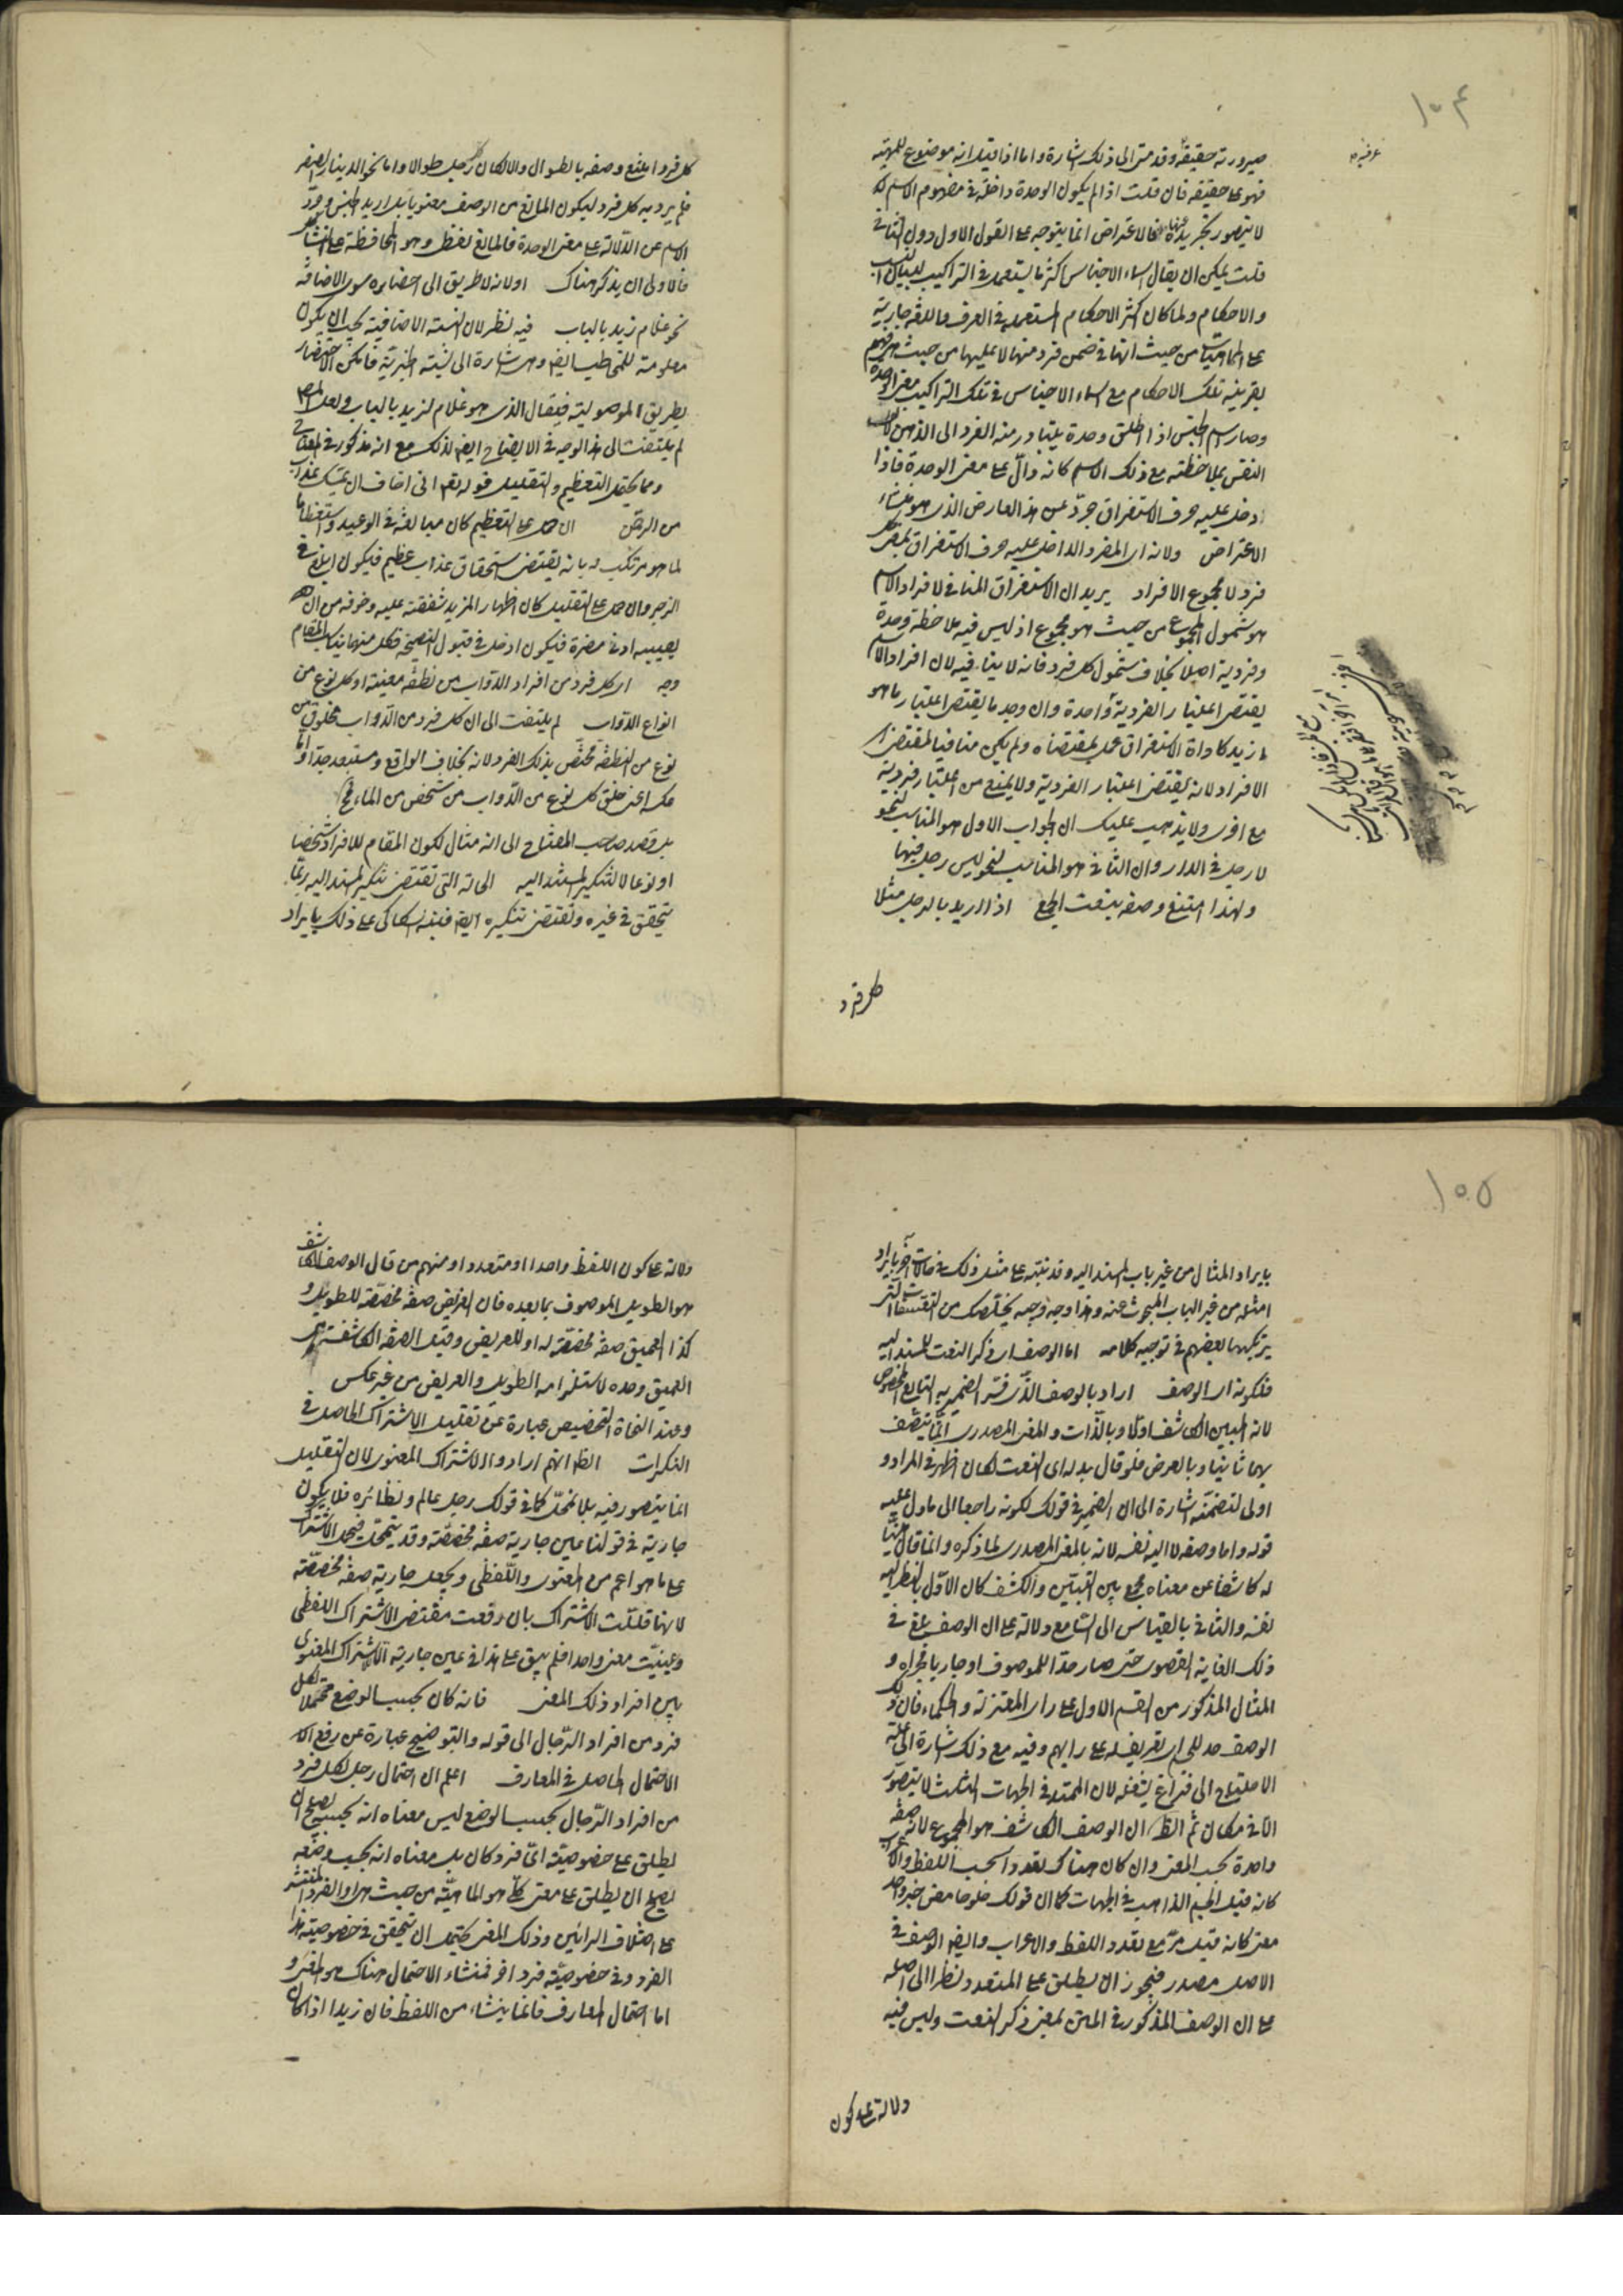 ١٠٤
عرفية
صيرورته حقيقة وقد مر الى ذلك اشارة واما اذا قيل انه موضوع للمهية
فهو على حقيقته فان قلت اذا لم يكون الوحدة داخلة في مفهوم الاسم
لا يتصور تجريده عنها فالاعتراض انما يتوجه على القول الاول دون الثاني
قلت يمكن ان يقال اسماء الاجناس اكثر ما يستعمل في التراكيب لبيان النسب
والاحكام ولما كان اكثر الاحكام المستعملة في العرف واللغة جارية
على الماهيات من حيث انها في ضمن فرد منها لا عليها من حيث هي فهم
بقرينة تلك الاحكام مع اسماء الاجناس في تلك التراكيب معنى الوحدة
وصار اسم الجنس اذا اطلق وحده يتبادر منه الفرد الى الذهن
النفس بملاحظته مع ذلك الاسم كانه دال على معنى الوحدة فاذا
دخل عليه حرف الاستغراق جرد عن هذا العارض الذي هو منشاء
الاعتراض ولانه اى المفرد الداخل عليه حرف الاستغراق بمعنى كل
فرد لا مجموع الافراد يريد ان الاستغراق المنافي لافراد الاسم
هو شمول المجموع من حيث هو مجموع اذ ليس فيه ملاحظة وحدة
وفردية اصلا بخلاف شمول كل فرد فانه لا ينافيه لان افراد الاسم
يقتضى اعتبار الفردية واحدة وان وجد ما يقتضى اعتبار ما هو
ازيد كاداة الاستغراق عمل بمقتضاه ولم يكن منافيا لمقتضى
الافراد لانه يقتضى اعتبار الفردية ولا يمنع من اعتبار فردية
مع اخرى ولا يذهب عليك ان الجواب الاول هو المناسب لنحو
لا رجل في الدار وان الثاني هو المناسب لنحو ليس رجل فيها
ولهذا امتنع وصفه بنعت الجمع اذا اريد بالرجل مثلا
كل فرد
كل فرد امتنع وصفه بالطوال والا لكان رجل طوالا واما نحو الدينار الصفر
فلم يرد به كل فرد ليكون المانع من الوصف معنويا بل اريد الجنس وجرد
الاسم عن الدلالة على معنى الوحدة فالمانع لفظى وهو المحافظة على التشاكل
فالاولى ان يذكر هناك اولا انه لا طريق الى احضاره سوى الاضافة
نحو غلام زيد بالباب فيه نظر لان النسبة الاضافية يجب ان يكون
معلومة للمخاطب ايض وهى اشارة الى نسبة خبرية فامكن الاحضار
بطريق الموصولية فيقال الذى هو غلام لزيد بالباب ولعل المص
لم يلتفت الى هذا الوجه في الايضاح ايض لذلك مع انه مذكور في المفتاح
ومما يحتمل التعظيم والتقليل قوله تع انى اخاف ان يمسك عذاب
من الرحمن ان حمل على التعظيم كان مبالغة في الوعيد واستعظاما
لما هو مرتكب له بانه يقتضى استحقاق عذاب عظيم فيكون ابلغ في
الزجر وان حمل على التقليل كان اظهار المزيد شفقته عليه وخوفه من ان
يصيبه ادنى مضرة فيكون ادخل في قبول النصيحة فكل منهما يناسب المقام
وجه اى كل فرد من افراد الدواب من نطفة معينة او كل نوع من
انواع الدواب لم يلتفت الى ان كل فرد من الدواب مخلوق من
نوع من النطفة مختص بذلك الفرد لانه بخلاف الواقع ومستبعد جدا واما
عكسه اعنى خلق كل نوع من الدواب من شخص من الماء
بل قصد صاحب المفتاح الى انه مثال لكون المقام للافراد شخصا
او نوعا لا لتنكير المسند اليه الحالة التى تقتضى تنكير المسند اليه ربما
يتحقق في غيره وتقتضى تنكيره ايض فنبه السكاكى على ذلك بايراد
١٠٥
بايراد المثال من غير باب المسند اليه وقد نبه على مثل ذلك في مقامات اخر بايراد
امثلة من غير الباب المبحوث عنه وهذا وجه وجيه يخلصك من التعسفات التى
يرتكبها بعضهم في توجيه كلامه اما الوصف اى ذكر النعت للمسند اليه
فلكونه اى الوصف اراد بالوصف الذى فسر الضمير به التابع المخصوص
لانه المبين الكاشف اولا وبالذات والمعنى المصدرى انما يتصف
بهما ثانيا وبالعرض فلو قال بدله اى النعت لكان اظهر في المراد و
اولى لتضمنه اشارة الى ان الضمير في قولك لكونه راجعا الى ما دل عليه
قوله واما وصفه لا اليه نفسه لانه بالمعنى المصدرى لما ذكره وانما قال مبينا
له كاشفا عن معناه بجمع بين التبيين والكشف كان الاول بالنظر اليه
نفسه والثاني بالقياس الى السامع دلالة على ان الوصف بلغ في
ذلك الغاية القصوى حتى صار حدا للموصوف او جاريا مجراه و
المثال المذكور من القسم الاول على راى المعتزلة والحكماء فان ذلك
الوصف حد للجسم اى تعريف له على رايهم وفيه مع ذلك اشارة الى علة
الاحتياج الى فراغ يشغله لان الممتد في الجهات الثلث لا يتصور
الا في مكان ثم الظ ان الوصف الكاشف هو المجموع لانه صفة
واحدة بحسب المعنى وان كان هناك تعدد بحسب اللفظ والاعراب
كانه قيل الجسم الذاهب في الجهات كما ان قولك حلو حامض خبر واحد
معنى كانه قيل مز مع تعدد اللفظ والاعراب وايض الوصف في
الاصل مصدر فيجوز ان يطلق على المتعدد نظرا الى اصله
على ان الوصف المذكور في المتن بمعنى ذكر النعت وليس فيه
دلالة على كون
دلالة على كون اللفظ واحدا او متعددا ومنهم من قال الوصف الكاشف
هو الطويل الموصوف بما بعده فان العريض صفة مخصصة للطويل و
كذا العميق صفة مخصصة له او للعريض وقيل الصفة الكاشفة هى
العميق وحده لاستلزامه الطويل والعريض من غير عكس
وعند النحاة التخصيص عبارة عن تقليل الاشتراك الحاصل في
النكرات الظ انهم ارادوا الاشتراك المعنوى لان التقليل
انما يتصور فيه بلا تمحل كما في قولك رجل عالم ونظائره فلا يكون
جارية في قولنا عين جارية صفة مخصصة وقد يتمحل فيحمل الاشتراك
على ما هو اعم من المعنوى واللفظى ويجعل جارية صفة مخصصة
لانها قللت الاشتراك بان رفعت مقتضى الاشتراك اللفظى
وعينت معنى واحدا فلم يبق على هذا في عين جارية الا الاشتراك المعنوى
بين افراد ذلك المعنى فانه كان بحسب الوضع محتملا لكل
فرد من افراد الرجال الى قوله والتوضيح عبارة عن رفع
الاحتمال الحاصل في المعارف اعلم ان احتمال رجل لكل فرد
من افراد الرجال بحسب الوضع ليس معناه انه بحسبه يصلح ان
يطلق على خصوصية اى فرد كان بل معناه انه بحسب وضعه
يصلح ان يطلق على معنى كلى هو الماهية من حيث هى او الفرد المنتشر
على اختلاف الرايين وذلك المعنى يحتمل ان يتحقق في خصوصية هذا
الفرد وفى خصوصية فرد اخر فمنشاء الاحتمال هناك هو المعنى و
اما احتمال المعارف فانما ينشاء من اللفظ فان زيدا اذا كان